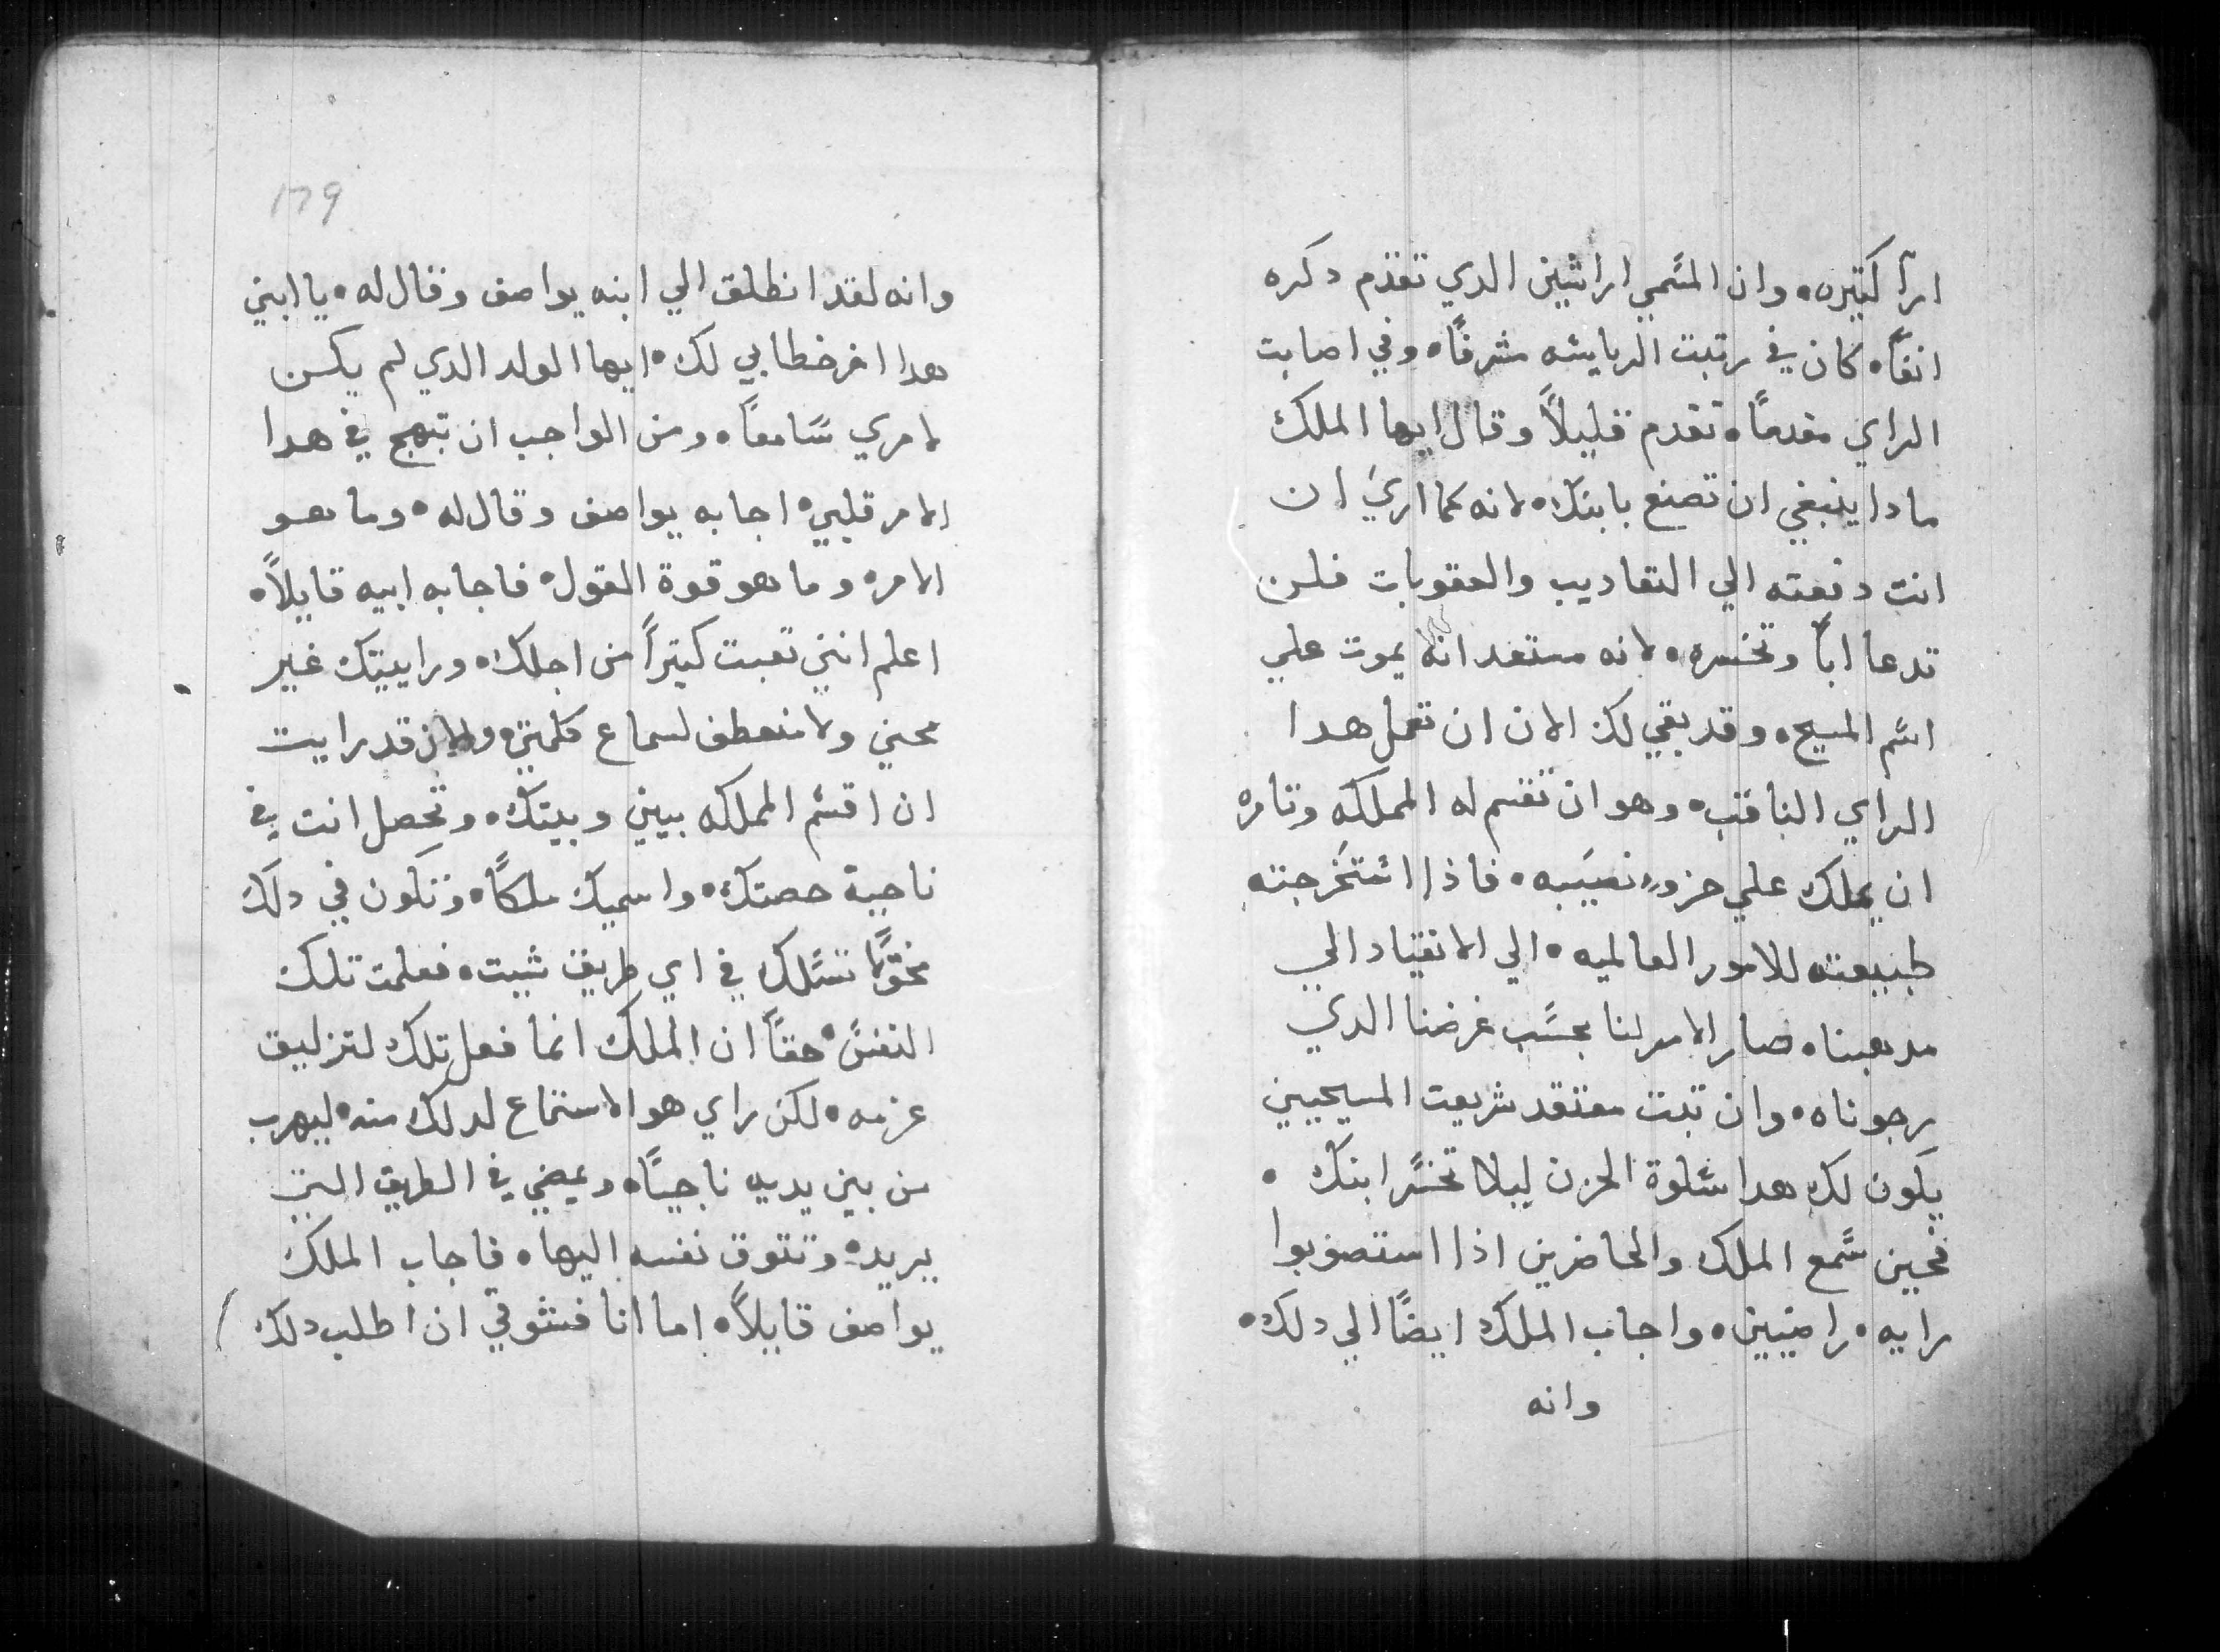 ارآ كتيره، وان المسمي اراشين الدي تقدم دكره
انفاً، كان في رتبت الريايسه مشرفاً، وفي اصابت
الراي مقدماً، تقدم قليلاً وقال ايها الملك
مادا ينبغي ان تصنع بابنك، لانه كما اري ان
انت دفعته الي التعاديب والعقوبات فلن
تدعا اباً وتخسره، لانه مستعد انه يموت علي
اسم المسيح، وقد بقي لك الان ان تعمل هدا
الراي التاقب، وهو ان تقسم له المملكه وتامره
ان يملك علي حزو نصيبه، فاذا استخرجته
طبيعته للامور العالميه، الي الانقياد الي
مدهبنا، صار الامر لنا بحسب غرضنا الدي
رجوناه، وان تبت معتقد شريعت المسيحيين
يكون لك هدا سلوة الحزن ليلا تخسر ابنك،
فحين سمع الملك والحاضرين اذا استصوبوا
رايه، راضيين، واجاب الملك ايضاً الي دلك،
وانه
179
وانه لقد انطلق الي ابنه يواصف وقال له، يا ابني
هدا اخر خطابي لك، ايها الولد الدي لم يكن
لامري سامعاً، ومن الواجب ان تبهج في هدا
الامر قلبي، اجابه يواصف وقال له، وما هو
الامر، وما هو قوة القول، فاجابه ابيه قايلاً،
اعلم انني تعبت كتيراً من اجلك، ورايتيك غير
محني ولا منعطف لسماع كلمتي، والان قد رايت
ان اقسم المملكه بيني وبينك، وتحصل انت في
ناحية حصتك، واسميك ملكاً، وتكون في دلك
مخوَّلاً تسلك في اي طريق شيت، فعلمت تلك
النفس، حقاً ان الملك انما فعل تلك لتزليق
عزمه، لكن راي هو الاستماع لدلك منه، ليهرب
من بين يديه ناجياً، ويمضي في الطريق التي
يريد، وتتوق نفسه اليها، فاجاب الملك
يواصف قايلاً، اما انا فشوقي ان اطلب دلك